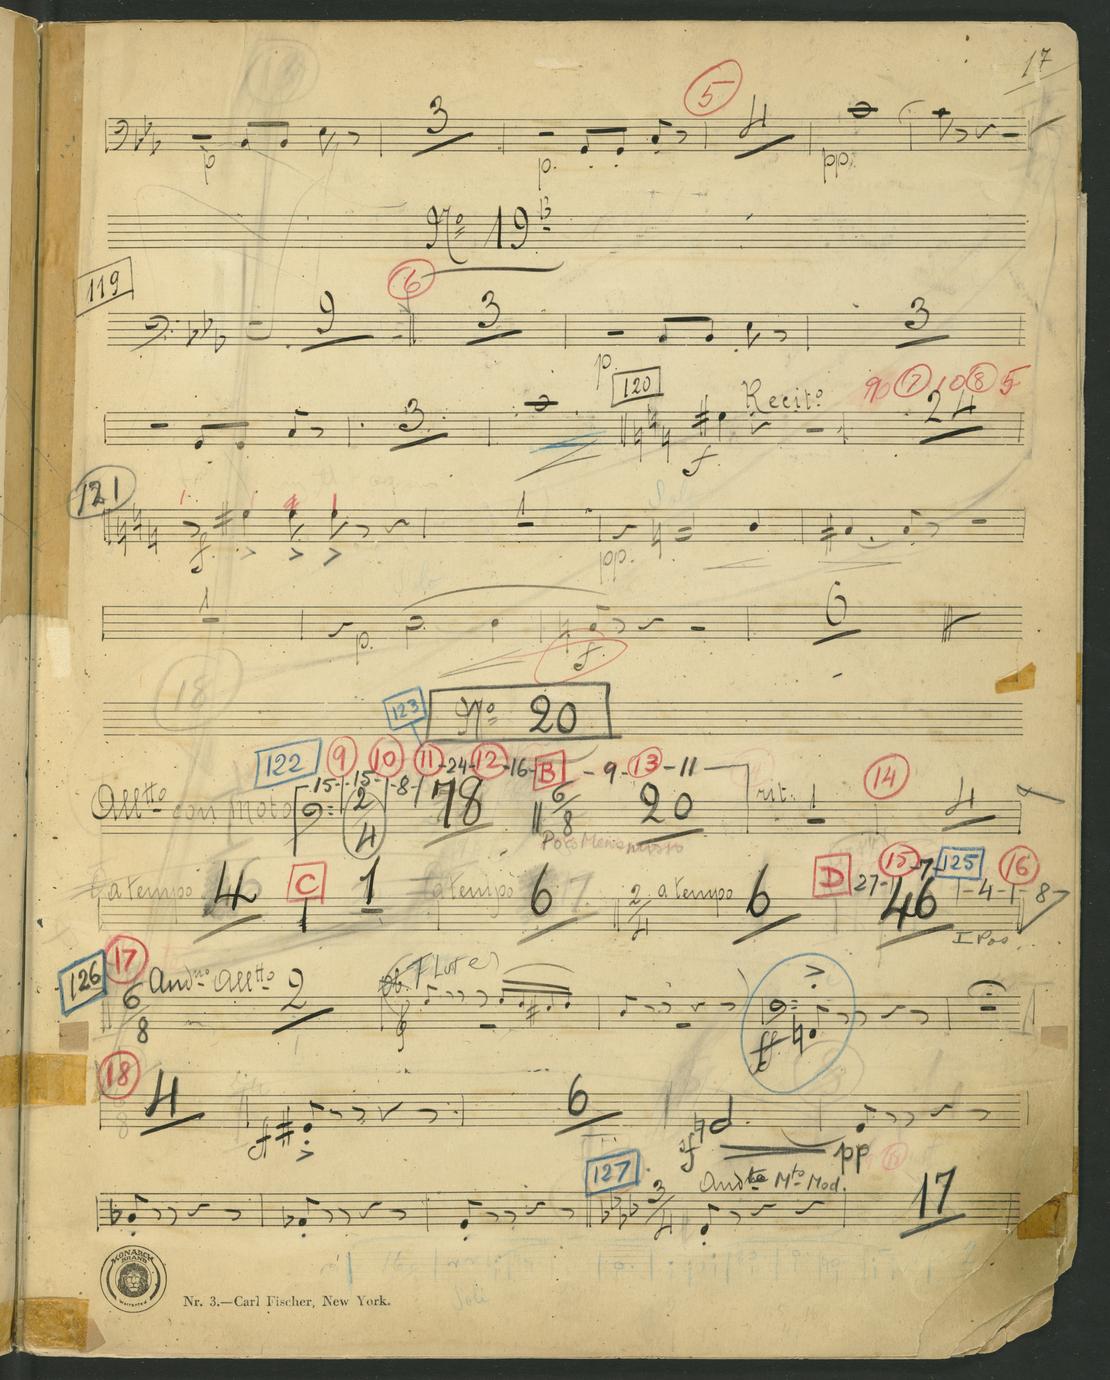 17
5
3 4
p p. pp.
Nº 19 B
119
6
9 3 3
p.
120 Recitº 9 7 10 8 5
3 24
f
121
1
f. pp.
Solo
1 6
p. f.
18
123 Nº 20
122 9 10 11 -24- 12 -16- B -9- 13 -11
-15- -15- -8-
Alltto con moto 2/4 78 6/8 20 rit. 1 14 4
Poco Meno mosso
a tempo 4 C 1 a tempo 6 2/4 a tempo 6 D 27- 15 -7- 125 16
46 -4- -8-
I Pos.
126 17
6/8 Andno Alltto 2 Ob. Flute
ff
18
4 6
f f pp
127
3/4 Andte Mto Mod. 17
MONARCH BRAND
WARRANTED
Nr. 3.—Carl Fischer, New York.
Soli